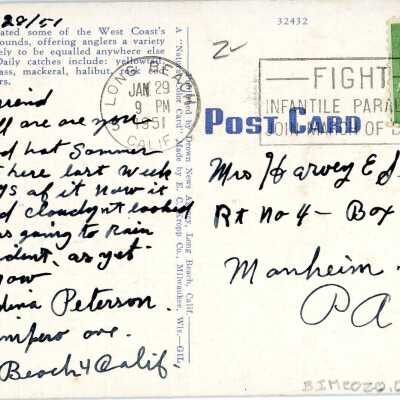 28/51
32432
2-
ated some of the West Coast's
ounds, offering anglers a variety
ely to be equalled anywhere else
Daily catches include: yellowtail,
ass, mackeral, halibut,
rs.
LONG BEACH
JAN 29
9 PM
1951
CALIF.
FIGHT
INFANTILE PARAL
JOIN MARCH OF D
POST CARD
A "Natural Color Card" Made by E. C. Kropp Co., Milwaukee, Wis.—GIL,
Distributed by Drown News Agency, Long Beach, Calif.
riend
are are you
d hat Sommer
here last week
ys of it now it
d cloudy it looked
as going to rain
dident, as yet
now
dina Peterson.
nipero ave.
Beach 4 Calif
Mrs Harvey E S
Rt no 4 - Box
Manheim
PA